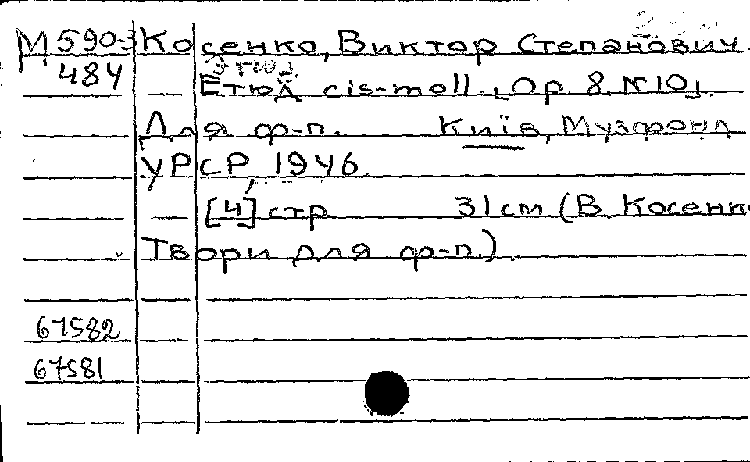 М590-3 Косенко, Виктор Степанович.
484 Етюд cis-moll. [Ор. 8. №10].
Для ф-п. Київ, Музфонд
УРСР, 1946.
[4] стр 31 см (В. Косенко
Твори для ф-п.).
67582
67581